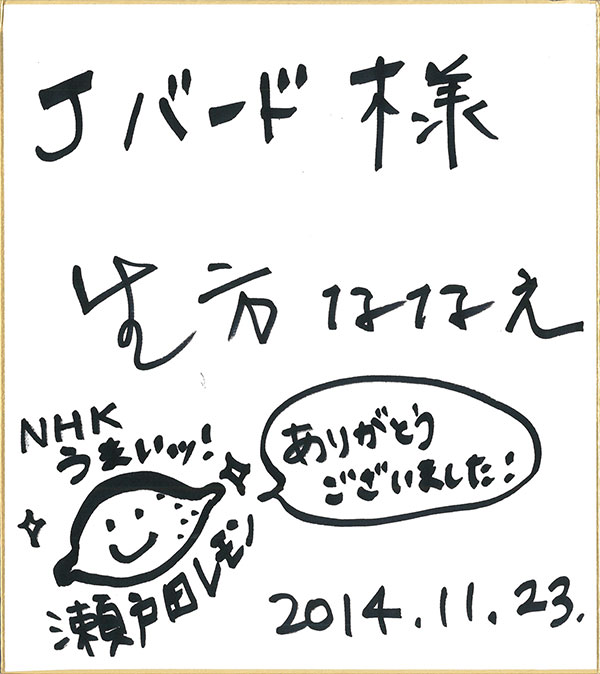 Jバード 様
生方ななえ
NHK
うまいッ!
瀬戸田レモン
ありがとう
ございました!
2014.11.23.